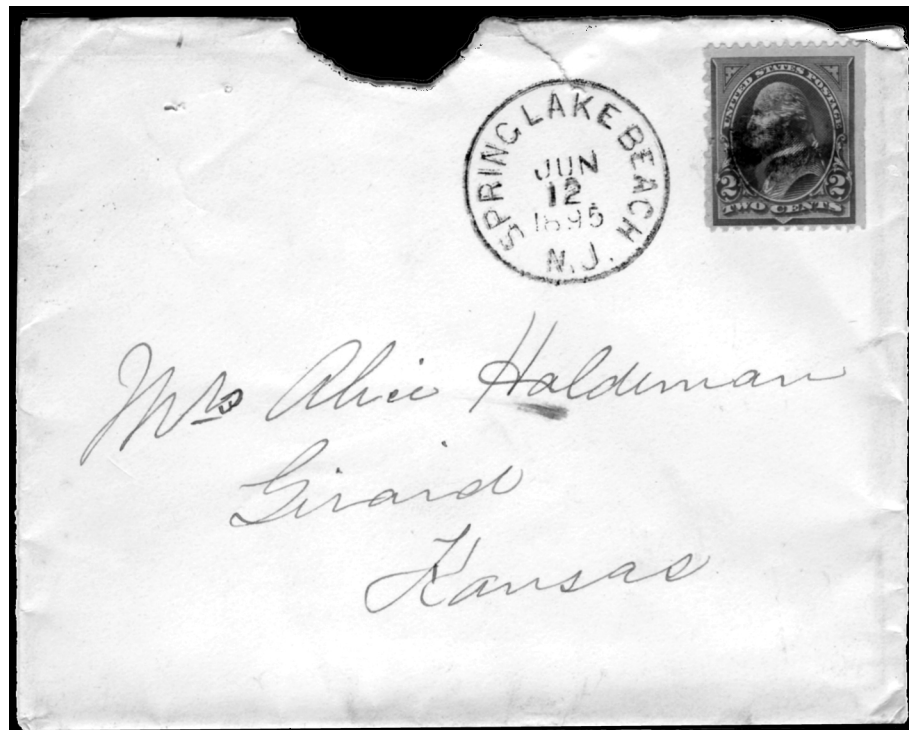 SPRING LAKE BEACH
JUN
12
1895
N.J.
UNITED STATES POSTAGE
2 2
TWO CENTS
Mrs Alice Haldeman
Girard
Kansas